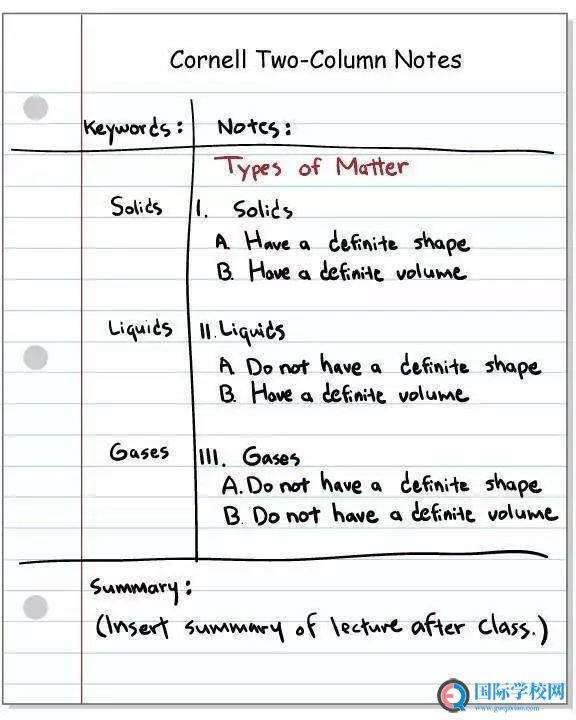 Cornell Two-Column Notes
Keywords: Notes:
Types of Matter
Solids I. Solids
A. Have a definite shape
B. Have a definite volume
Liquids II. Liquids
A. Do not have a definite shape
B. Have a definite volume
Gases III. Gases
A. Do not have a definite shape
B. Do not have a definite volume
Summary:
(Insert summary of lecture after class.)
国际学校网
www.guojixiao.com